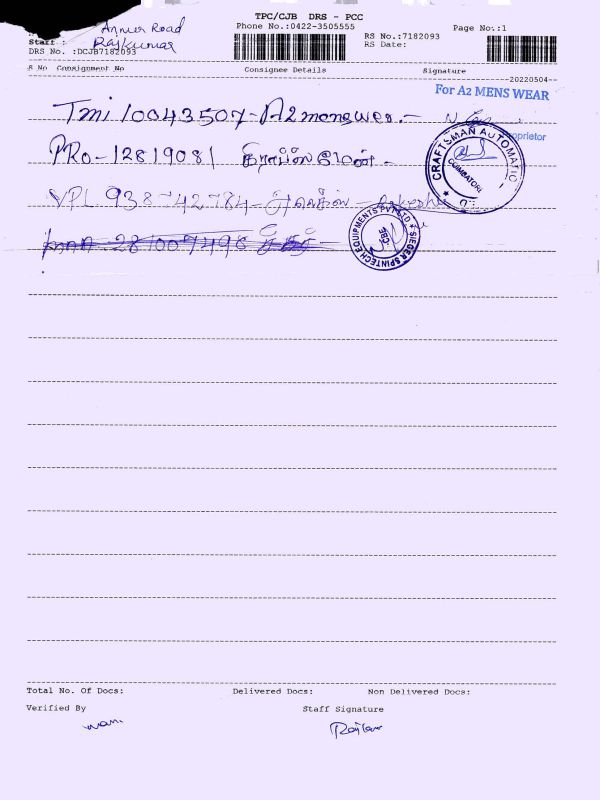 TPC/CJB DRS - PCC
Annur Road
Phone No.:0422-3505555 Page No.:1
Staff : Rajkumar RS No.:7182093
DRS No. :DCJB7182093 RS Date:
S No Consignment No Consignee Details Signature
20220504
For A2 MENS WEAR
Tmi 10043507-A2menswear.-
Proprietor
PRO-12819081 கிராப்ஸ்மேன்-
CRAFTSMAN AUTOMATIC
COIMBATORE
VPL 938742784-
SIEGER SPINTECH EQUIPMENTS PVT LTD
CBE
281007498
Total No. Of Docs: Delivered Docs: Non Delivered Docs:
Verified By Staff Signature
mani